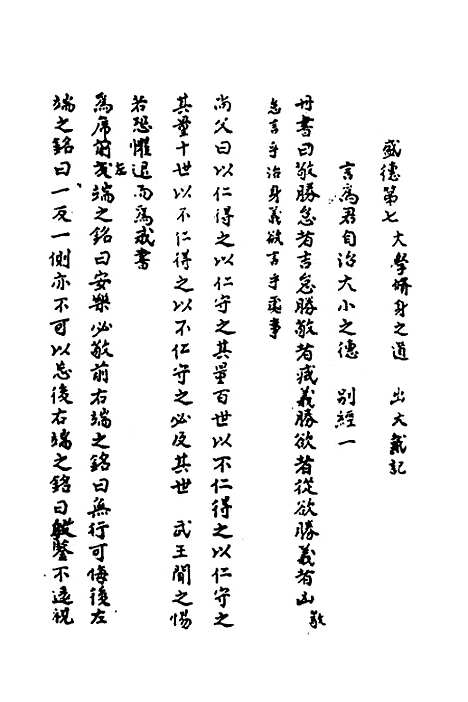 盛德第七　大學脩身之道　出大戴記
言爲君自治大小之德　別經一
丹書曰敬勝怠者吉怠勝敬者滅義勝欲者從欲勝義者凶敬
怠言乎治身義欲言乎事
尚父曰以仁得之以仁守之其量百世以不仁得之以仁守之
其量十世以不仁得之以不仁守之必及其世　武王聞之惕
若恐懼退而爲戒書
爲席前左端之銘曰安樂必敬前右端之銘曰無行可悔後左
端之銘曰一反一側亦不可以忘後右端之銘曰殷鑒不遠視